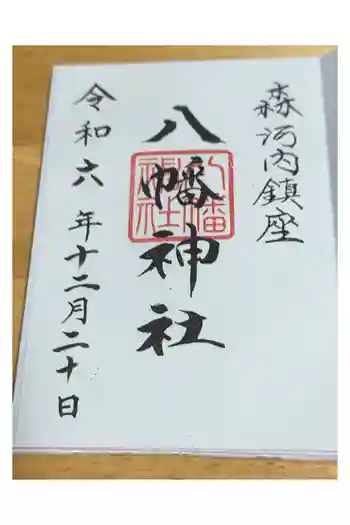 森河内鎮座
八幡神社
八幡神社
令和六年十二月二十日